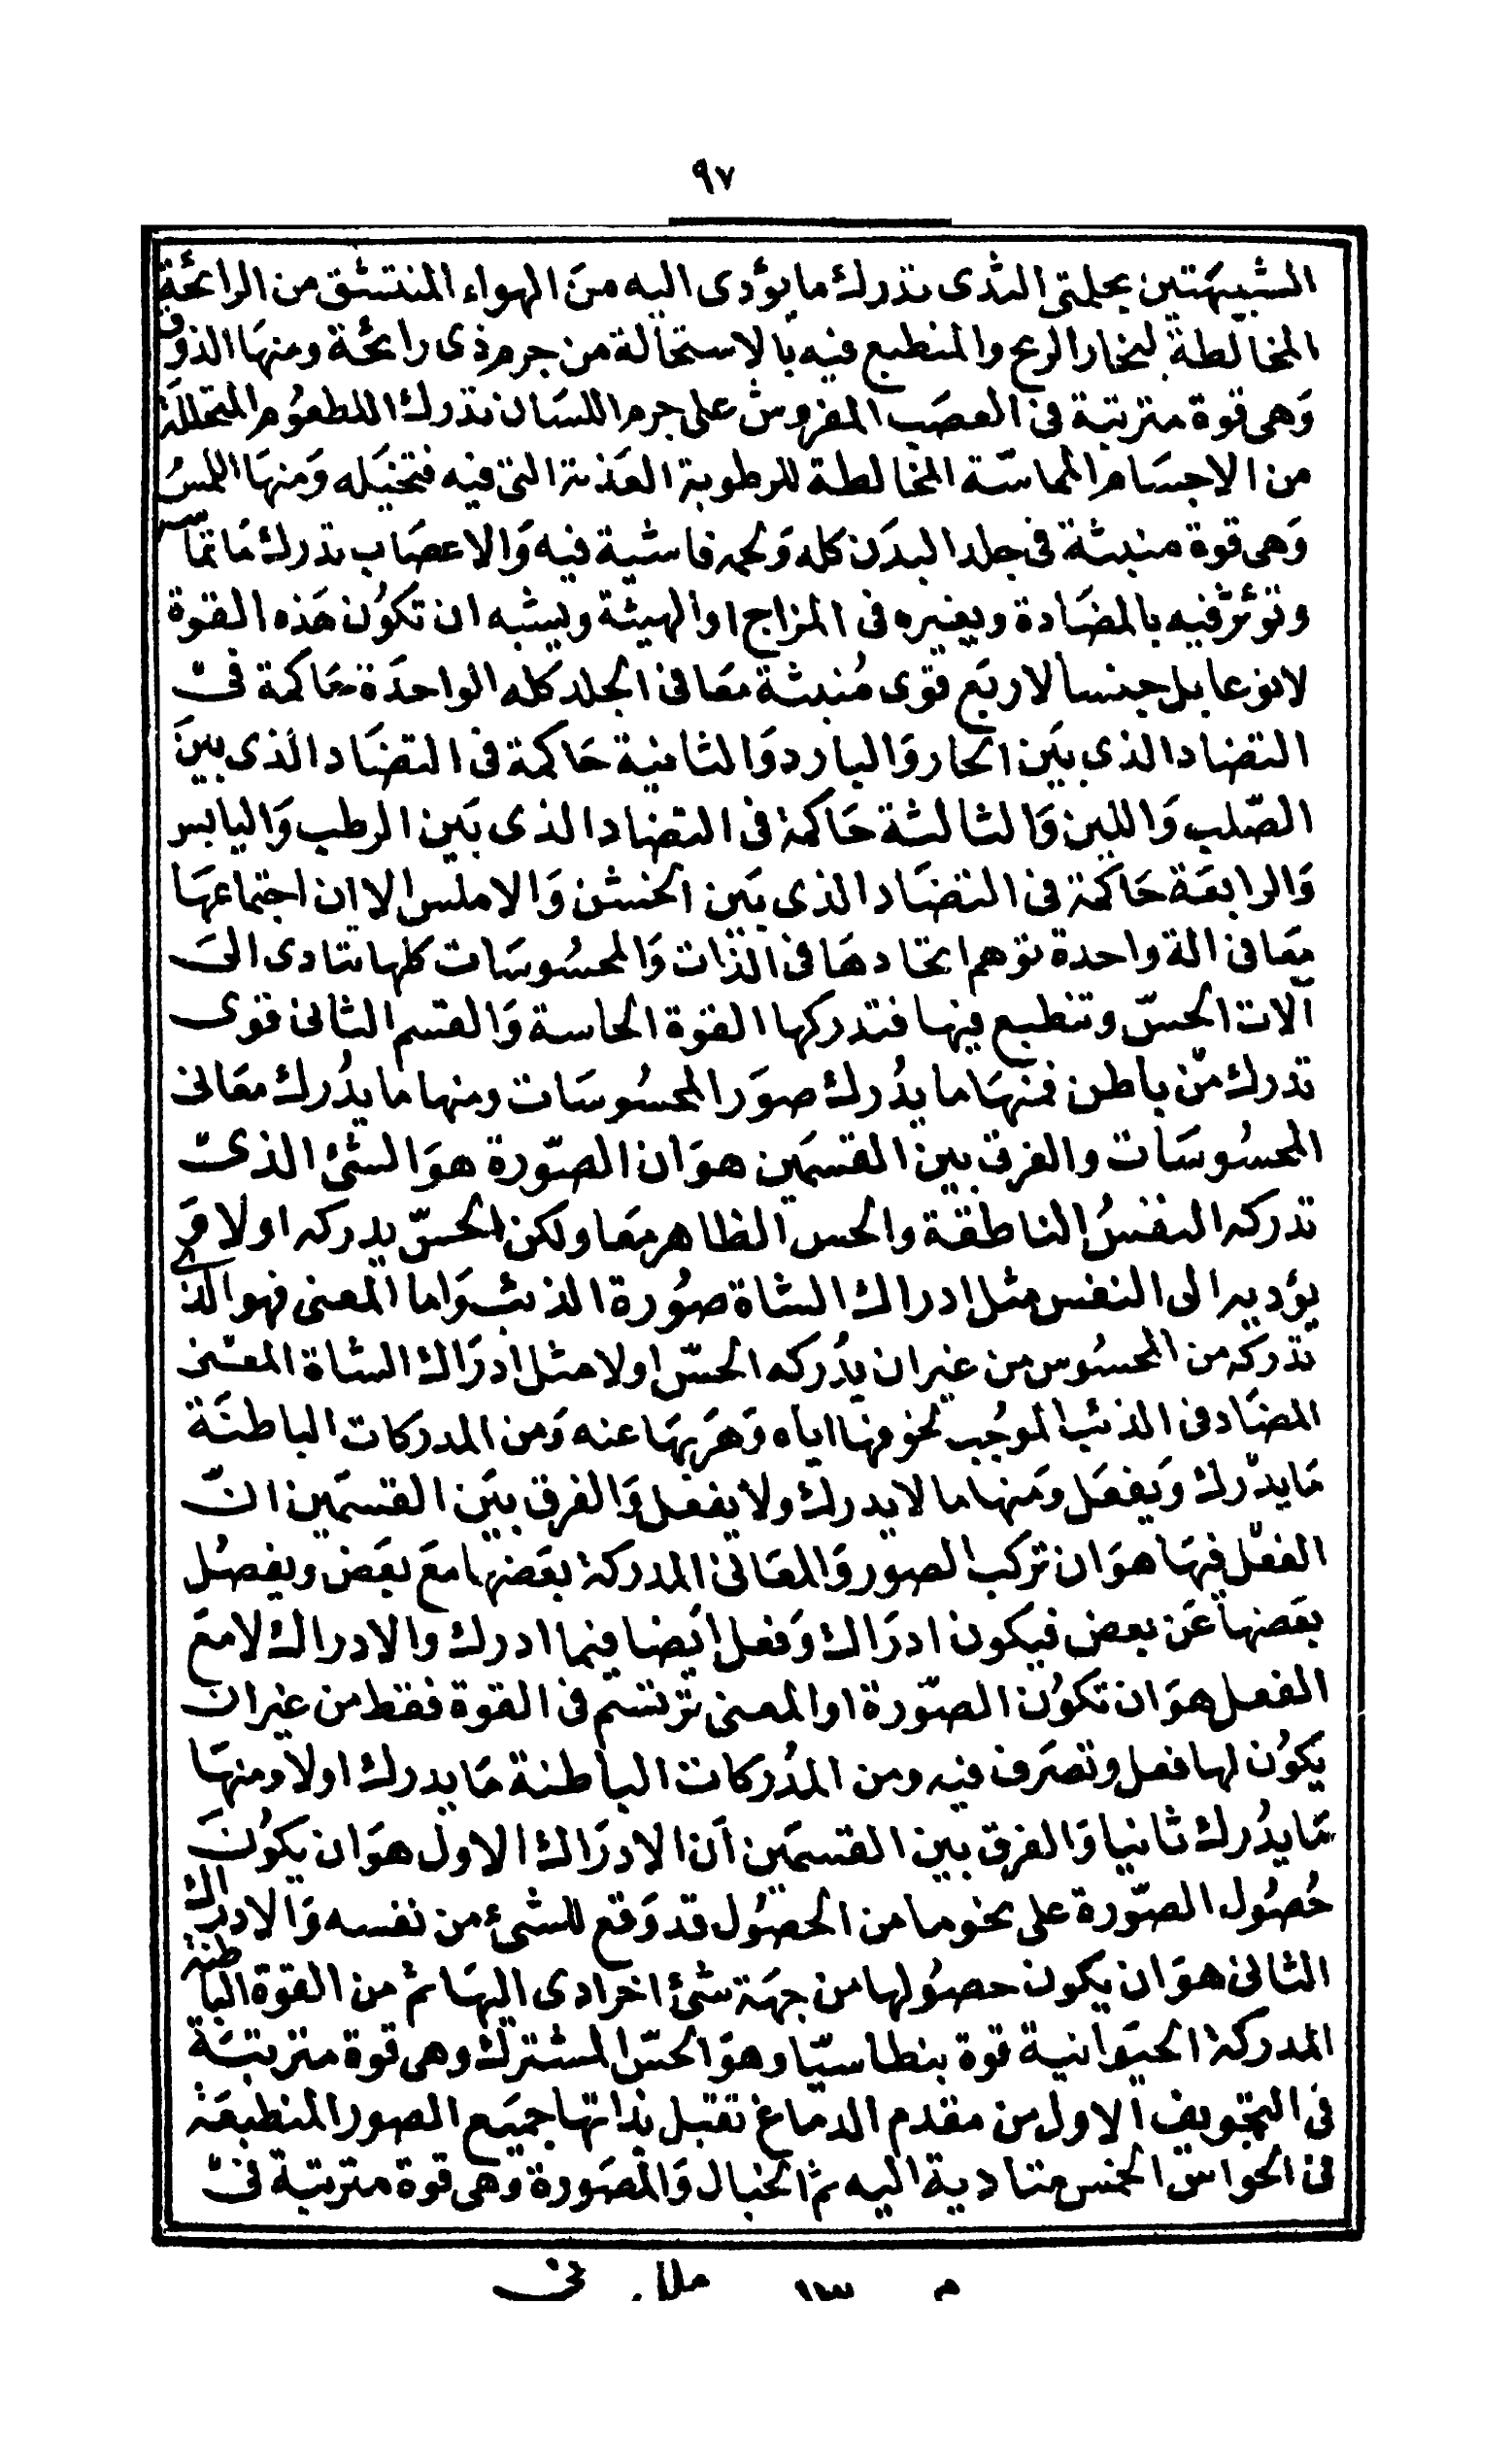 ٩٧
الشبيهتين بحلمتي الثدى تدرك ما يؤدى اليه من الهواء المنتشق من الرائحة
المخالطة لبخار الريح والمنطبع فيه بالاستحالة من جرم ذى رائحة ومنها الذوق
وهى قوة مترتبة فى العصب المفروش على جرم اللسان تدرك الطعوم المتحللة
من الاجسام المماسّة المخالطة للرطوبة العذبة التى فيه فتحيله ومنها اللمس
وهى قوة منبثة فى جلد البدن كله ولحمه فاشية فيه والاعصاب تدرك ما تماسه
وتؤثر فيه بالمضادة ويغيره فى المزاج او الهيئة ويشبه ان تكون هذه القوة
لا نوعا بل جنسا لاربع قوى منبثة معا فى الجلد كله الواحدة حاكمة فى
التضاد الذى بين الحار والبارد والثانية حاكمة فى التضاد الذى بين
الصّلب واللين والثالثة حاكمة فى التضاد الذى بين الرطب واليابس
والرابعة حاكمة فى التضاد الذى بين الخشن والاملس الا ان اجتماعها
معا فى الة واحدة توهم اتحادها فى الذات والمحسوسات كلها تتادى الى
آلات الحسّ وتنطبع فيها فتدركها القوة الحاسة والقسم الثانى قوى
تدرك من باطن فمنها ما يدرك صور المحسوسات ومنها ما يدرك معانى
المحسوسات والفرق بين القسمين هو ان الصّورة هو الشئ الذى
تدركه النفس الناطقة والحس الظاهر معا ولكن الحسّ يدركه اولا و
يؤديه الى النفس مثل ادراك الشاة صورة الذئب واما المعنى فهو الذى
تدركه من المحسوس من غير ان يدركه الحسّ اولا مثل ادراك الشاة المعنى
المضاد فى الذئب الموجب لخوفها اياه وهربها عنه ومن المدركات الباطنة
ما يدرك ويفعل ومنها ما لا يدرك ولا يفعل والفرق بين القسمين انّ
الفعل فيها هو ان تركب الصور والمعانى المدركة بعضها مع بعض ويفصل
بعضها عن بعض فيكون ادراك وفعل ايضا فيما ادرك والادراك لا مع
الفعل هو ان تكون الصّورة او المعنى ترتسم فى القوة فقط من غير ان
يكون لها فعل وتصرف فيه ومن المدركات الباطنة ما يدرك اولا ومنها
ما يدرك ثانيا والفرق بين القسمين ان الادراك الاول هو ان يكون
حصول الصّورة على نحو ما من الحصول قد وقع للشئ من نفسه والادراك
الثانى هو ان يكون حصولها من جهة شئ اخر ادى اليها ثم من القوة الباطنة
المدركة الحيوانية قوة بنطاسيّا وهو الحسّ المشترك وهى قوة مترتبة
فى التجويف الاول من مقدم الدماغ تقبل بذاتها جميع الصور المنطبعة
فى الحواس الخمس متادية اليه ثم الخيال والمصورة وهى قوة مترتبة فى